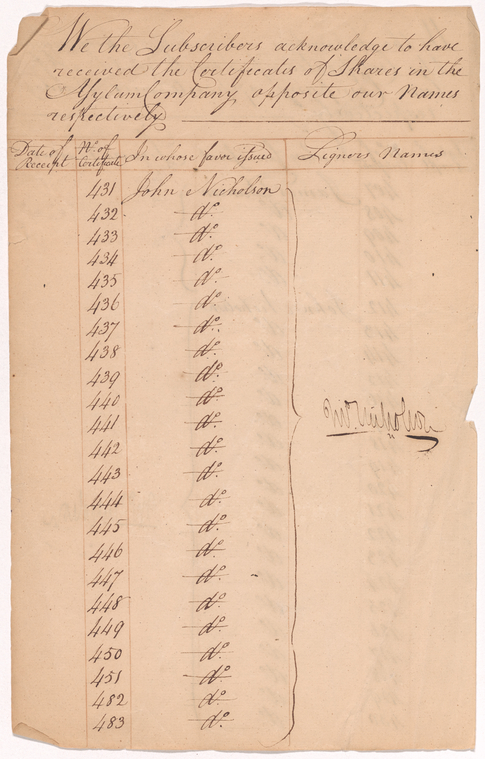 We the Subscribers acknowledge to have
received the Certificates of Shares in the
Asylum Company opposite our Names
respectively
Date of Receipt | No. of Certificate | In whose favor issued | Signors Names
431 John Nicholson
432 do.
433 do.
434 do.
435 do.
436 do.
437 do.
438 do.
439 do.
440 do.
441 do.
Jno. Nicholson
442 do.
443 do.
444 do.
445 do.
446 do.
447 do.
448 do.
449 do.
450 do.
451 do.
482 do.
483 do.